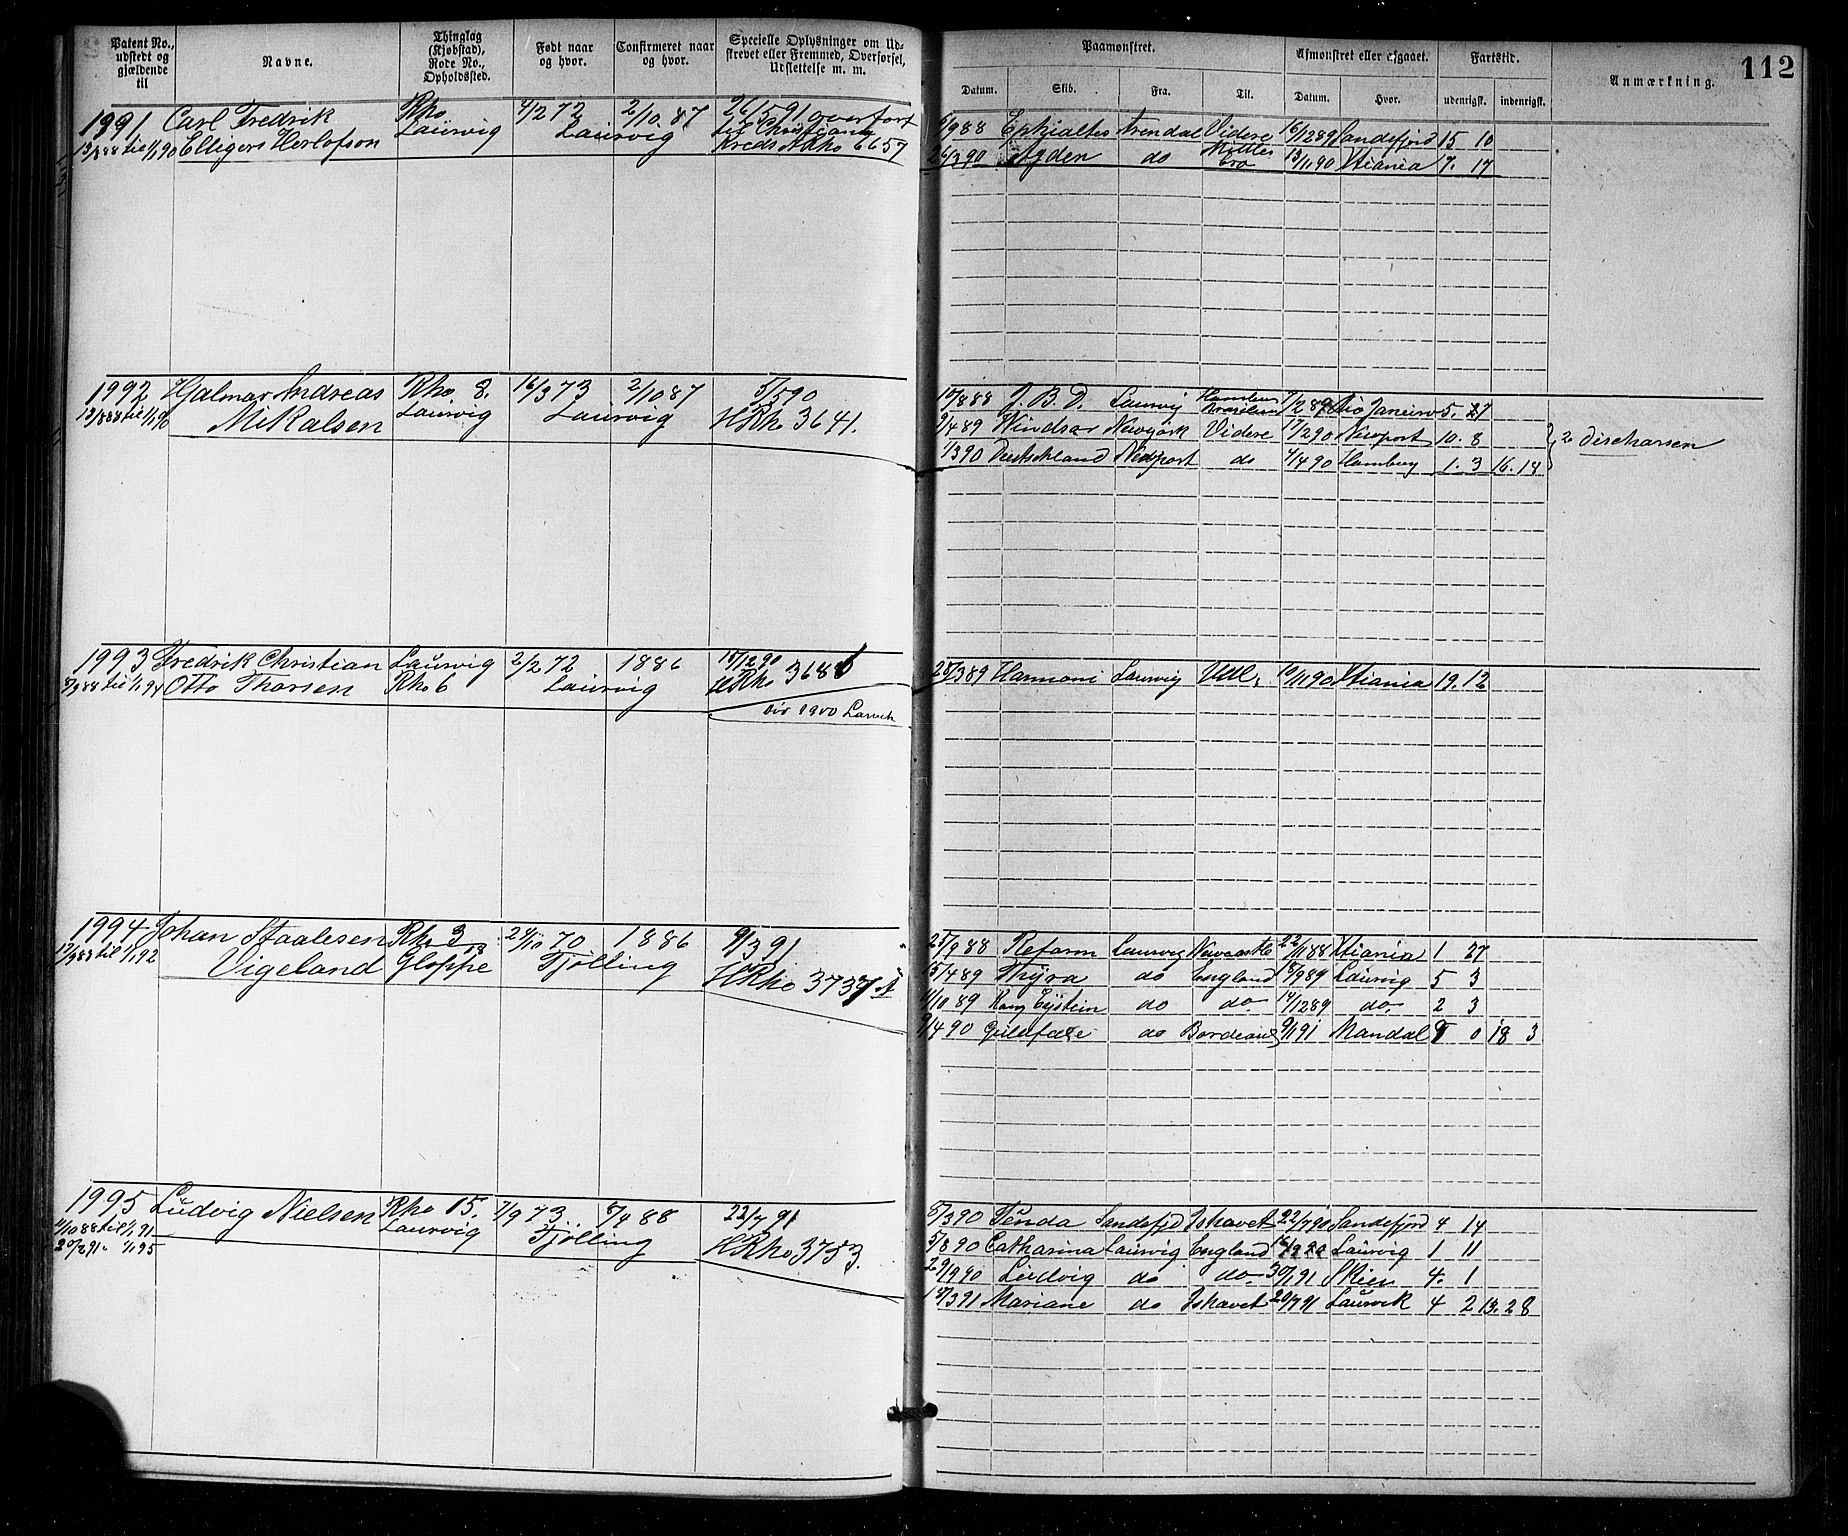 Patent No., udstedt og gjældende til
Navne.
Thinglag (Kjøbstad), Rode No., Opholdssted.
Født naar og hvor.
Confirmeret naar og hvor.
Specielle Oplysninger om Udskrevet eller Fremmed, Overførsel, Udslettelse m. m.
Paamønstret.
Afmønstret eller afgaaet.
Fartstid.
Anmærkning.
112
Datum. Skib. Fra. Til. Datum. Hvor. udenrigsk. indenrigsk.
1991 Carl Fredrik Rho 4/2 72 2/10 87 26/5 91 overført
13/8 88 til 1/1 90 Elligers Herlofson Laurvig Laurvig til Christiania
Kreds Rho 6657
6/9 88 Ephialtes Arendal Videre 16/12 89 Sandefjord 15 10
26/3 90 Agden do 13/11 90 Xtiania 7. 17
1992 Hjalmar Andreas Rho. 8. 16/3 73 2/10 87 5/5 90
13/8 88 til 1/1 90 Mikalsen Laurvig Laurvig HRho 3641.
17/8 88 J. B. D. Laurvig 7/2 89 Rio Janeiro 5. 27
9/4 89 Windsor Newyork Videre 17/2 90 Newport 10. 8
1/3 90 Deutschland Newport do 4/4 90 Hamburg 1. 3 16. 14
1993 Fredrik Christian Laurvig 2/2 72 1886 15/12 90
8/9 88 til 1/1 94 Otto Thorsen Rho 6 Laurvig HRho 3686
1900 Larvik
25/3 89 Harmoni Laurvig Udl. 10/11 90 Xtiania 19. 12
1994 Johan Staalesen Rho 3 24/10 70 1886 9/3 91
17/9 88 til 1/1 92 Vigeland Gloppe Tjølling HRho 3737
25/9 88 Reform Laurvig Newcastle 22/11 88 Xtiania 1 27
15/4 89 Thyra do England 18/9 89 Laurvig 5 3
11/10 89 Kong Eystein do do. 14/12 89 do. 2 3
9/4 90 Guldfaxe do Bordeaux 9/1 91 Mandal 9 0 18 3
1995 Ludvig Nielsen Rho 15. 7/9 73 8/4 88 22/7 91
4/10 88 til 1/1 91 Laurvig Tjølling HRho 3753.
20/2 91 " 1/1 95
8/3 90 Tenda Sandefjd Ishavet 22/7 90 Sandefjord 4 14
5/8 90 Catharina Laurvig England Laurvig 1 11
29/9 90 Ludvig do do. 30/1 91 Skien 4. 1
18/3 91 Mariane do Ishavet 20/7 91 Laurvik 4 2 13. 28